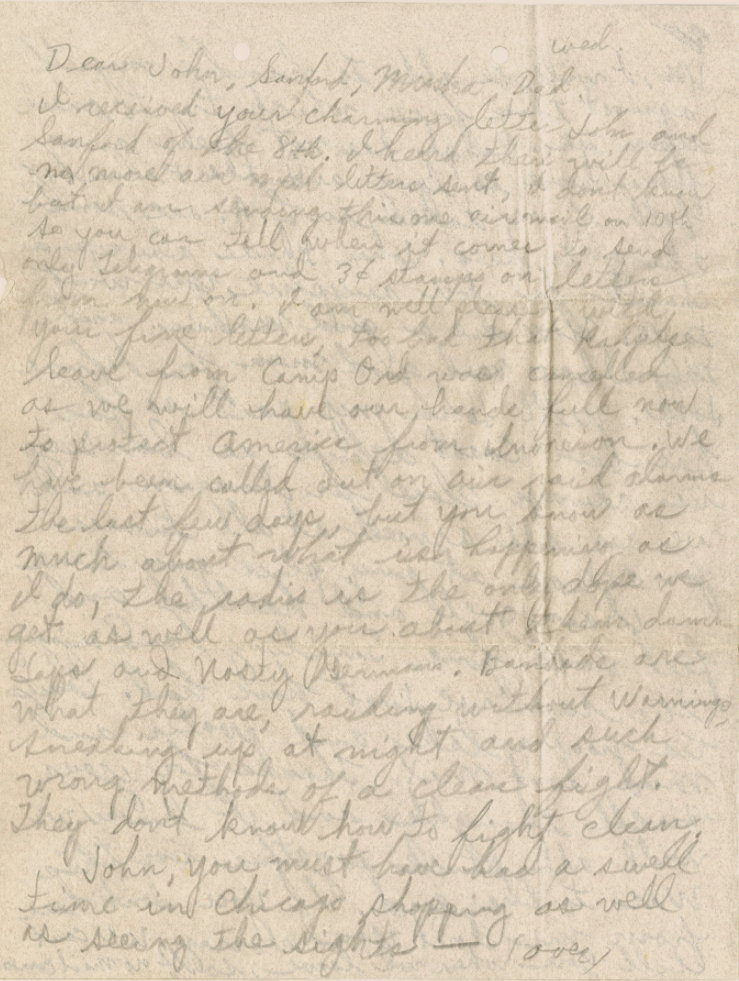 wed.
Dear John, Sanford, Mother, Dad
I received your charming letter John and
Sanford of the 8th. I heard their will be
no more air mail letters sent, I don't know
but I am sending this one airmail on 10th
so you can tell when it comes to send
only Telegrams and 3¢ stamps on letters
from now on. I am well pleased with
your fine letter, too bad that
leave from Camp Ord was canceled
as we will have our hands full now
to protect America from Invasion. We
have been called out on air raid alarms
the last few days, but you know as
much about what is happening as
I do, the radio is the only dope we
get as well as you about them damn
Japs and Nasty Germans. Bandits are
what they are, raiding without Warnings,
sneaking up at night and such
wrong methods of a clean fight.
They don't know how to fight clean.
John, you must have had a swell
time in Chicago shopping as well
as seeing the sights — (over)